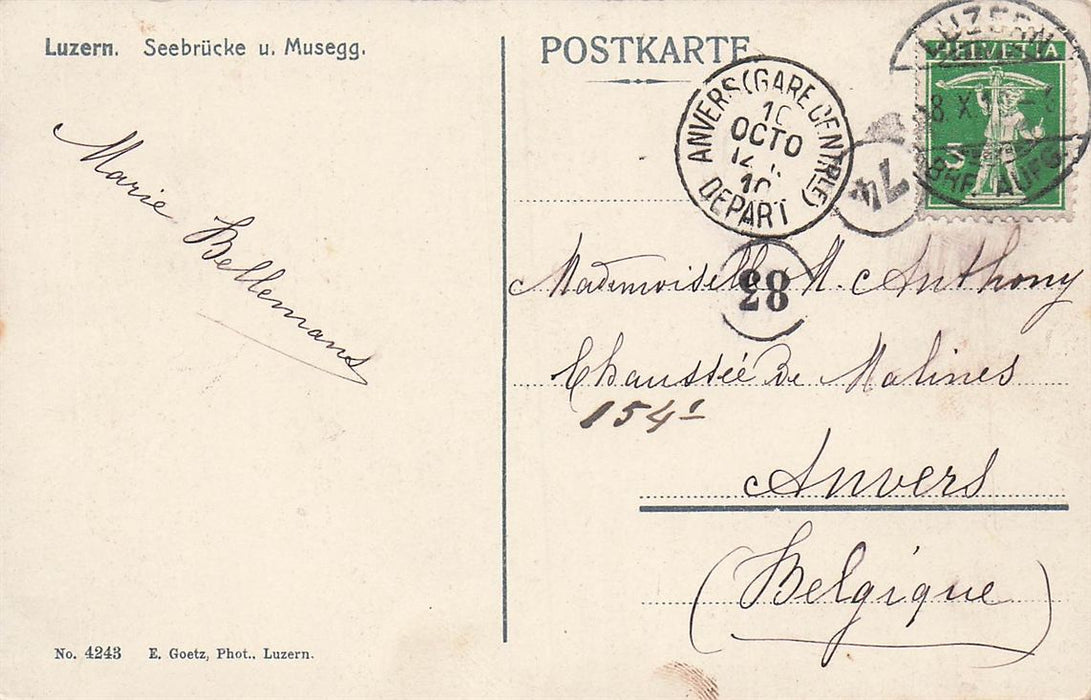 Luzern. Seebrücke u. Musegg.
POSTKARTE
LUZERN
HELVETIA
BRF. AUFG.
ANVERS (GARE CENTRLE)
10
OCTO
10
DEPART
74
28
Marie Bellemans
Mademoiselle M. Anthony
Chaussée de Malines
154
Anvers
(Belgique)
No. 4243 E. Goetz, Phot., Luzern.